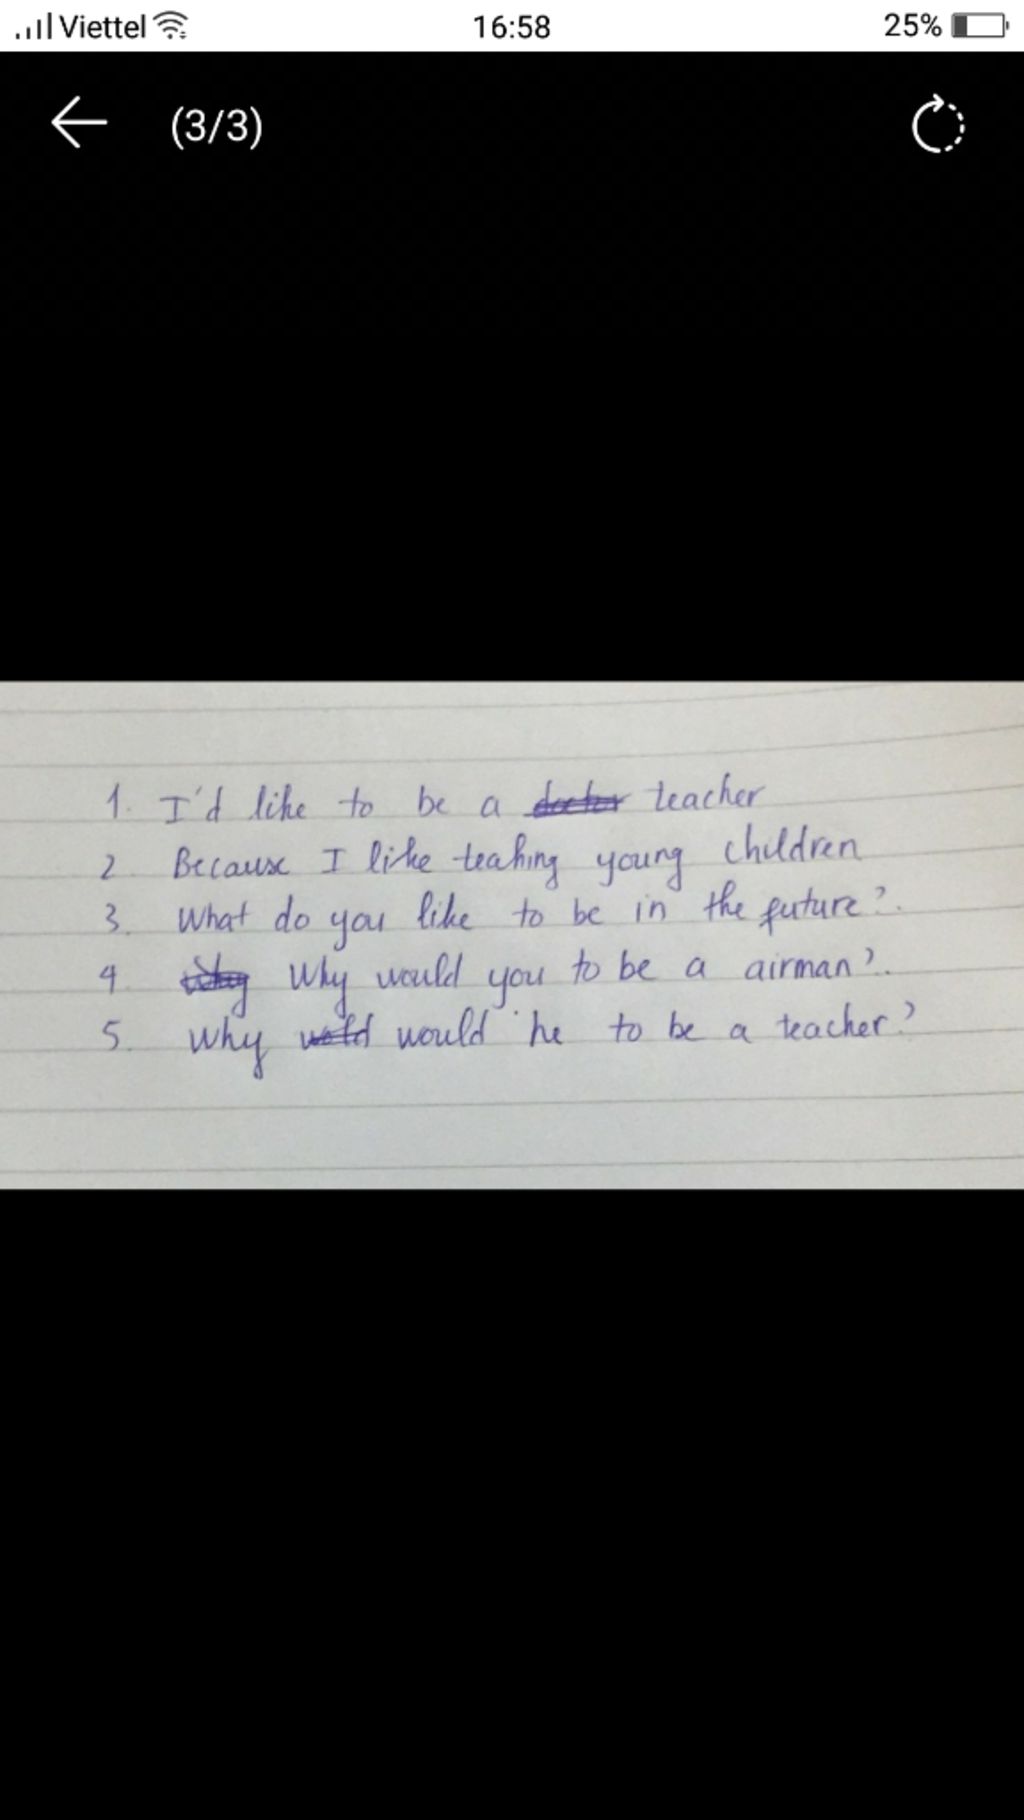 Viettel 16:58 25%
(3/3)
1. I'd like to be a doctor teacher
2. Because I like teahing young children
3. What do you like to be in the future?.
4. Why Why would you to be a airman?.
5. Why wold would he to be a teacher?